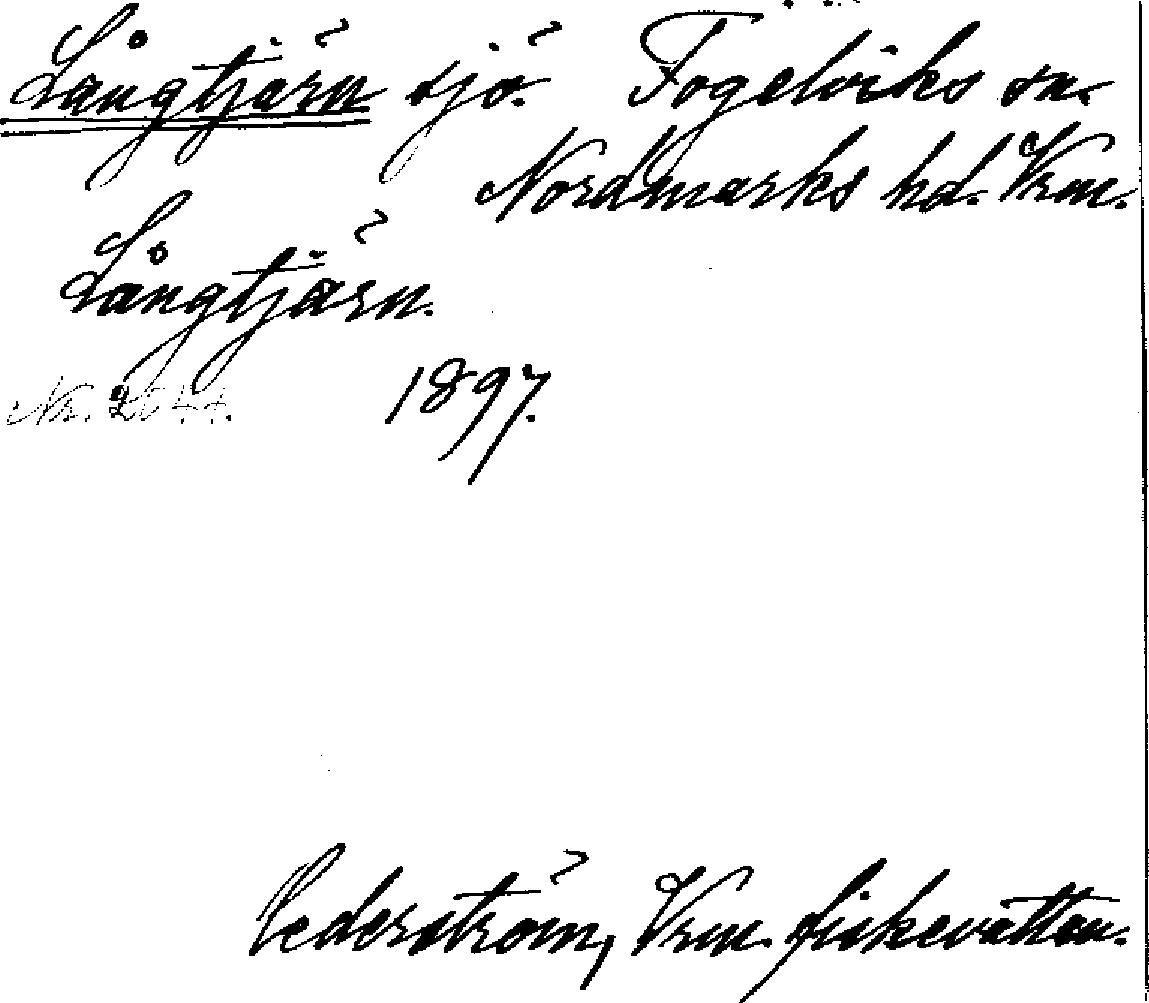 Långtjärn sjö. Fogelviks sn.
Nordmarks hd. Vrm.
Långtjärn.
No. 1897.
Cederström, Vrm. fiskevatten.